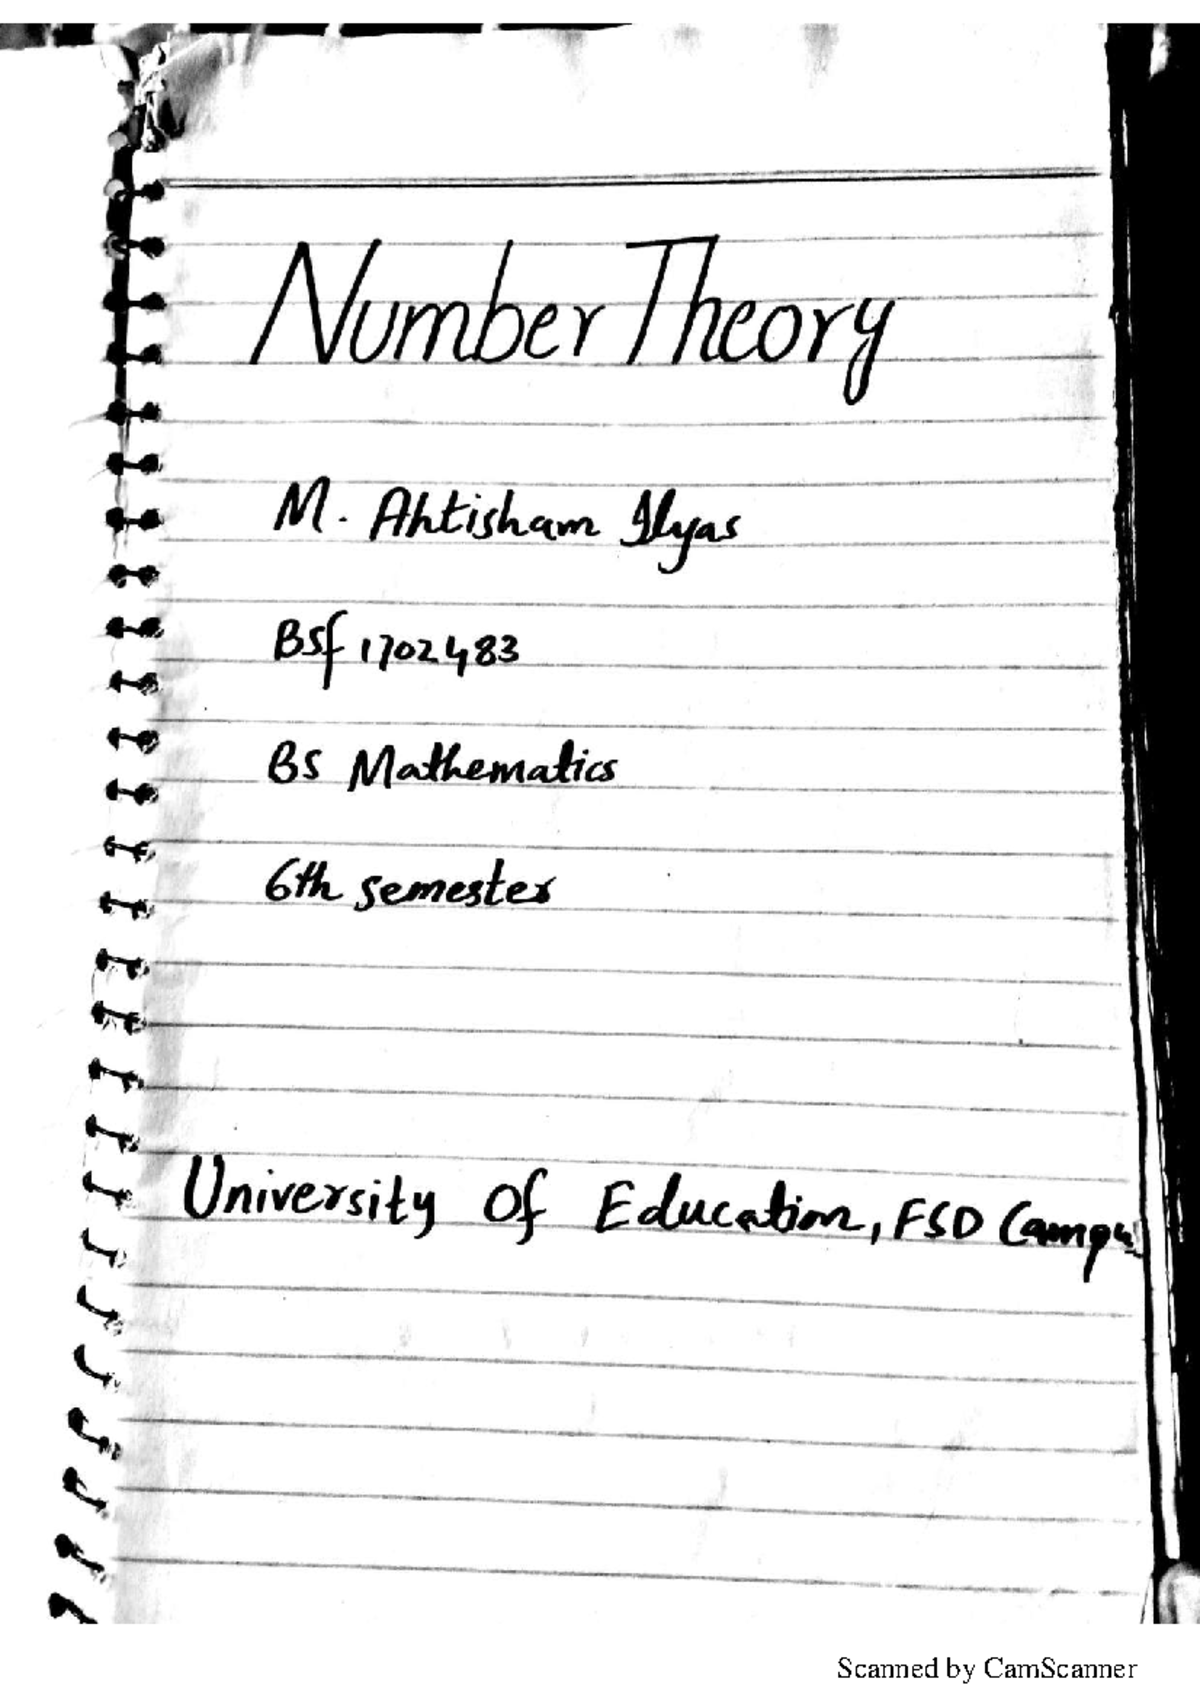 Number Theory
M. Ahtisham Ilyas
BSf 1702483
BS Mathematics
6th semester
University Of Education, FSD Campu
Scanned by CamScanner